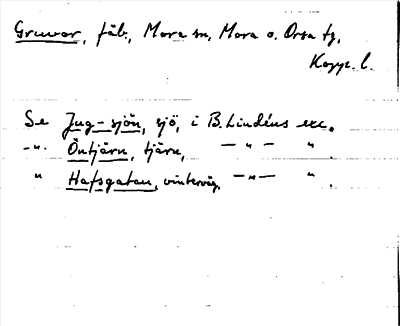 Gruvor, fäb., Mora sn, Mora o. Orsa tg,
Kopp. l.
Se Jug-sjön, sjö, i B. Lindéns exc.
-"- Öntjärn, tjärn, — " — "
" Hafsgatan, vinterväg, — " — " .